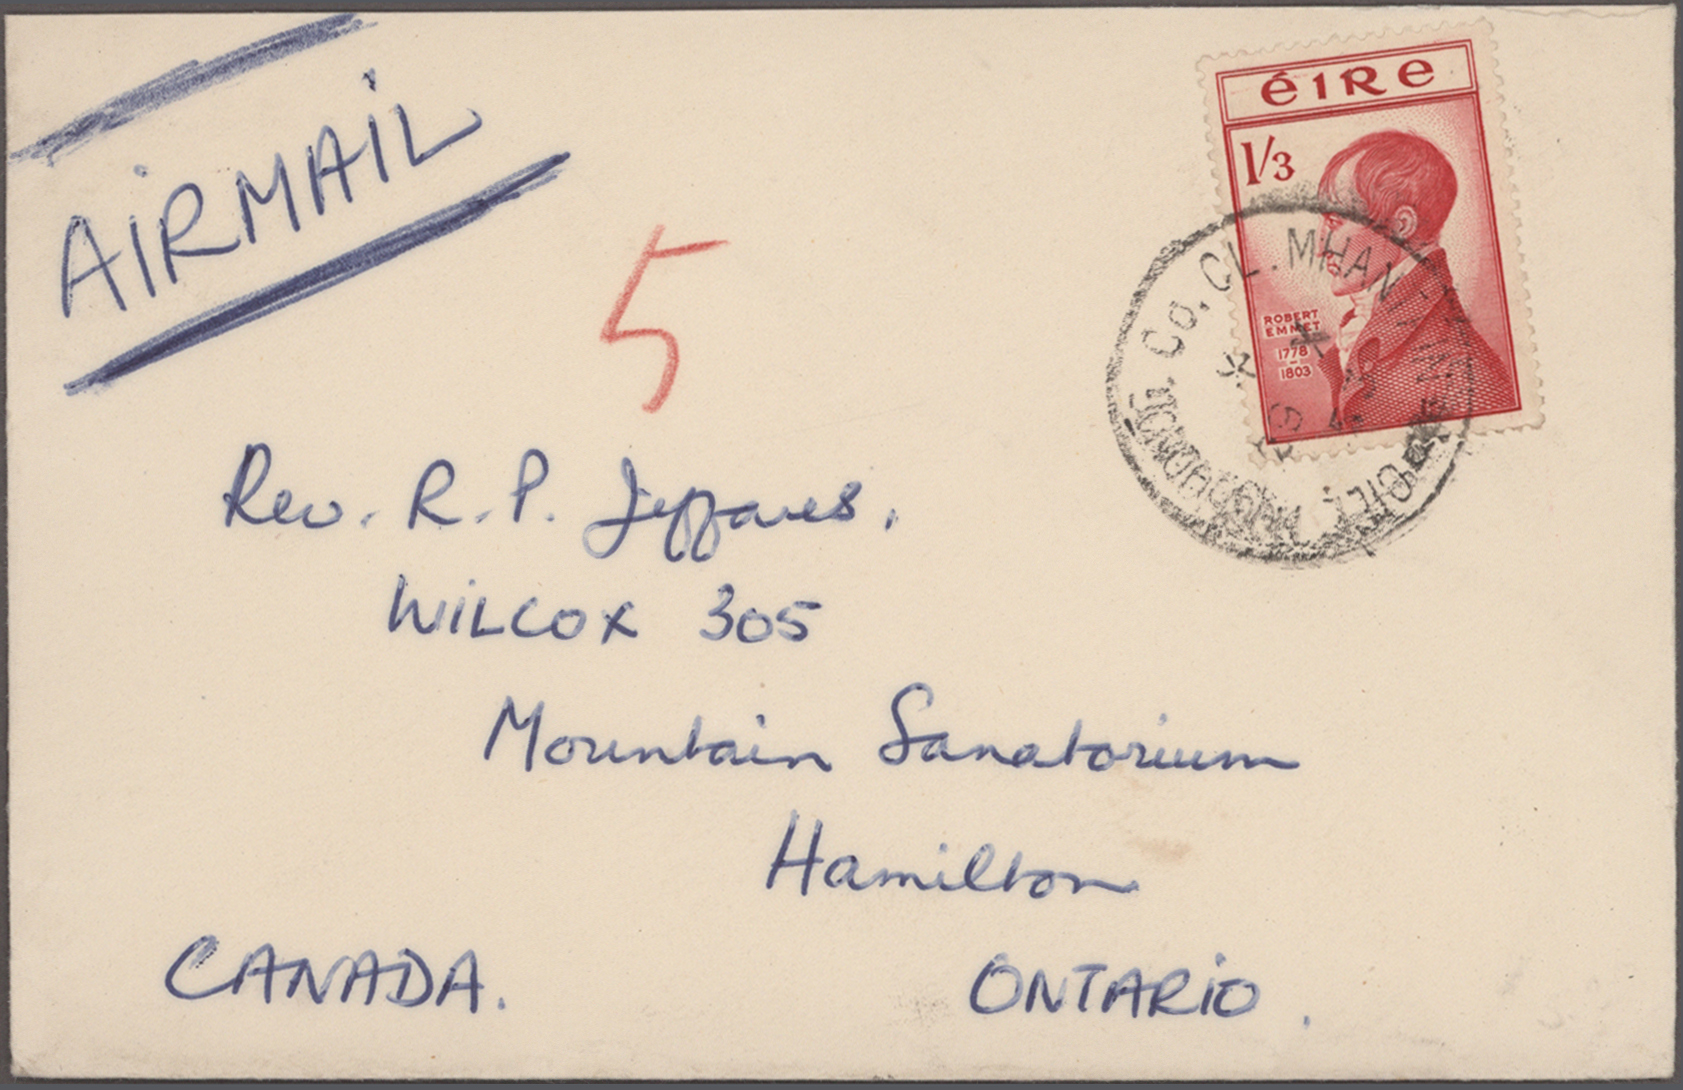 AIRMAIL
éire
1/3
ROBERT
EMMET
1778
1803
Co. CL.
5
Rev. R. P. Jeffares.
WILCOX 305
Mountain Sanatorium
Hamilton
CANADA. ONTARIO.